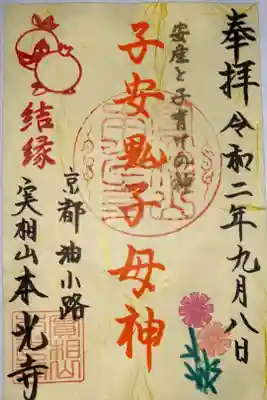 奉拝 令和二年九月八日
安産と子育ての神
子安鬼子母神
結縁
京都油小路
実相山本光寺